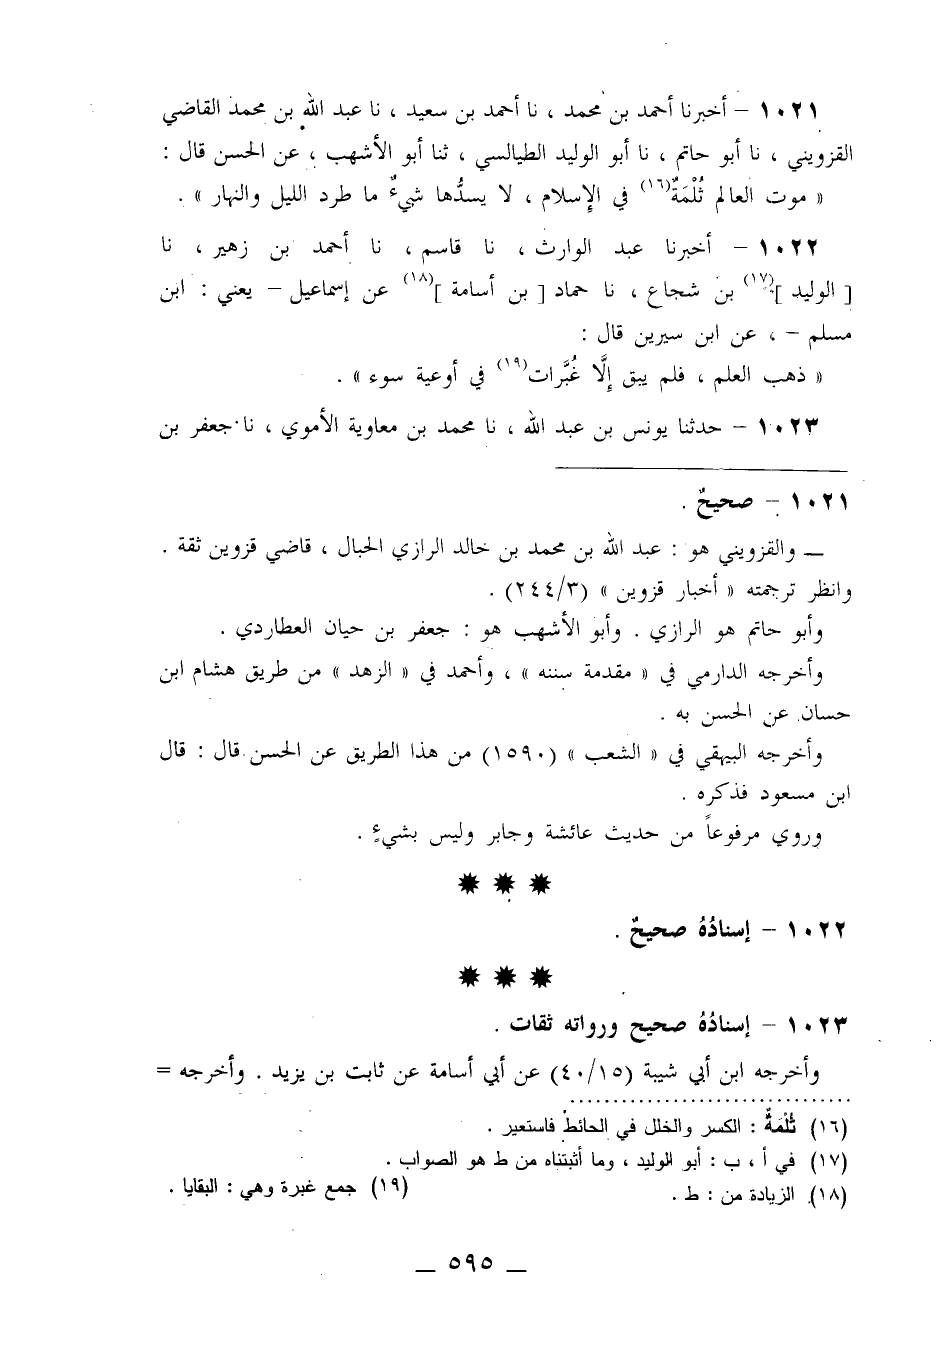 ١٠٢١ – أخبرنا أحمد بن محمد ، نا أحمد بن سعيد ، نا عبد الله بن محمد القاضي
القزويني ، نا أبو حاتم ، نا أبو الوليد الطيالسي ، ثنا أبو الأشهب ، عن الحسن قال :
« موت العالم ثُلْمَةٌ(١٦) في الإسلام ، لا يسدُّها شيءٌ ما طرد الليل والنهار » .
١٠٢٢ – أخبرنا عبد الوارث ، نا قاسم ، نا أحمد بن زهير ، نا
[ الوليد ](١٧) بن شجاع ، نا حماد [ بن أسامة ](١٨) عن إسماعيل – يعني : ابن
مسلم – ، عن ابن سيرين قال :
« ذهب العلم ، فلم يبق إلَّا غُبَّرات(١٩) في أوعية سوء » .
١٠٢٣ – حدثنا يونس بن عبد الله ، نا محمد بن معاوية الأموي ، نا جعفر بن
١٠٢١ – صحيحٌ .
— والقزويني هو : عبد الله بن محمد بن خالد الرازي الحبال ، قاضي قزوين ثقة .
وانظر ترجمته « أخبار قزوين » (٢٤٤/٣) .
وأبو حاتم هو الرازي . وأبو الأشهب هو : جعفر بن حيان العطاردي .
وأخرجه الدارمي في « مقدمة سننه » ، وأحمد في « الزهد » من طريق هشام ابن
حسان عن الحسن به .
وأخرجه البيهقي في « الشعب » (١٥٩٠) من هذا الطريق عن الحسن قال : قال
ابن مسعود فذكره .
وروي مرفوعاً من حديث عائشة وجابر وليس بشيءٍ .
١٠٢٢ – إسنادُهُ صحيحٌ .
١٠٢٣ – إسنادُهُ صحيح ورواته ثقات .
وأخرجه ابن أبي شيبة (٤٠/١٥) عن أبي أسامة عن ثابت بن يزيد . وأخرجه =
(١٦) ثُلْمَةٌ : الكسر والخلل في الحائط فاستعير .
(١٧) في أ ، ب : أبو الوليد ، وما أثبتناه من ط هو الصواب .
(١٨) الزيادة من : ط . (١٩) جمع غبرة وهي : البقايا .
— ٥٩٥ —